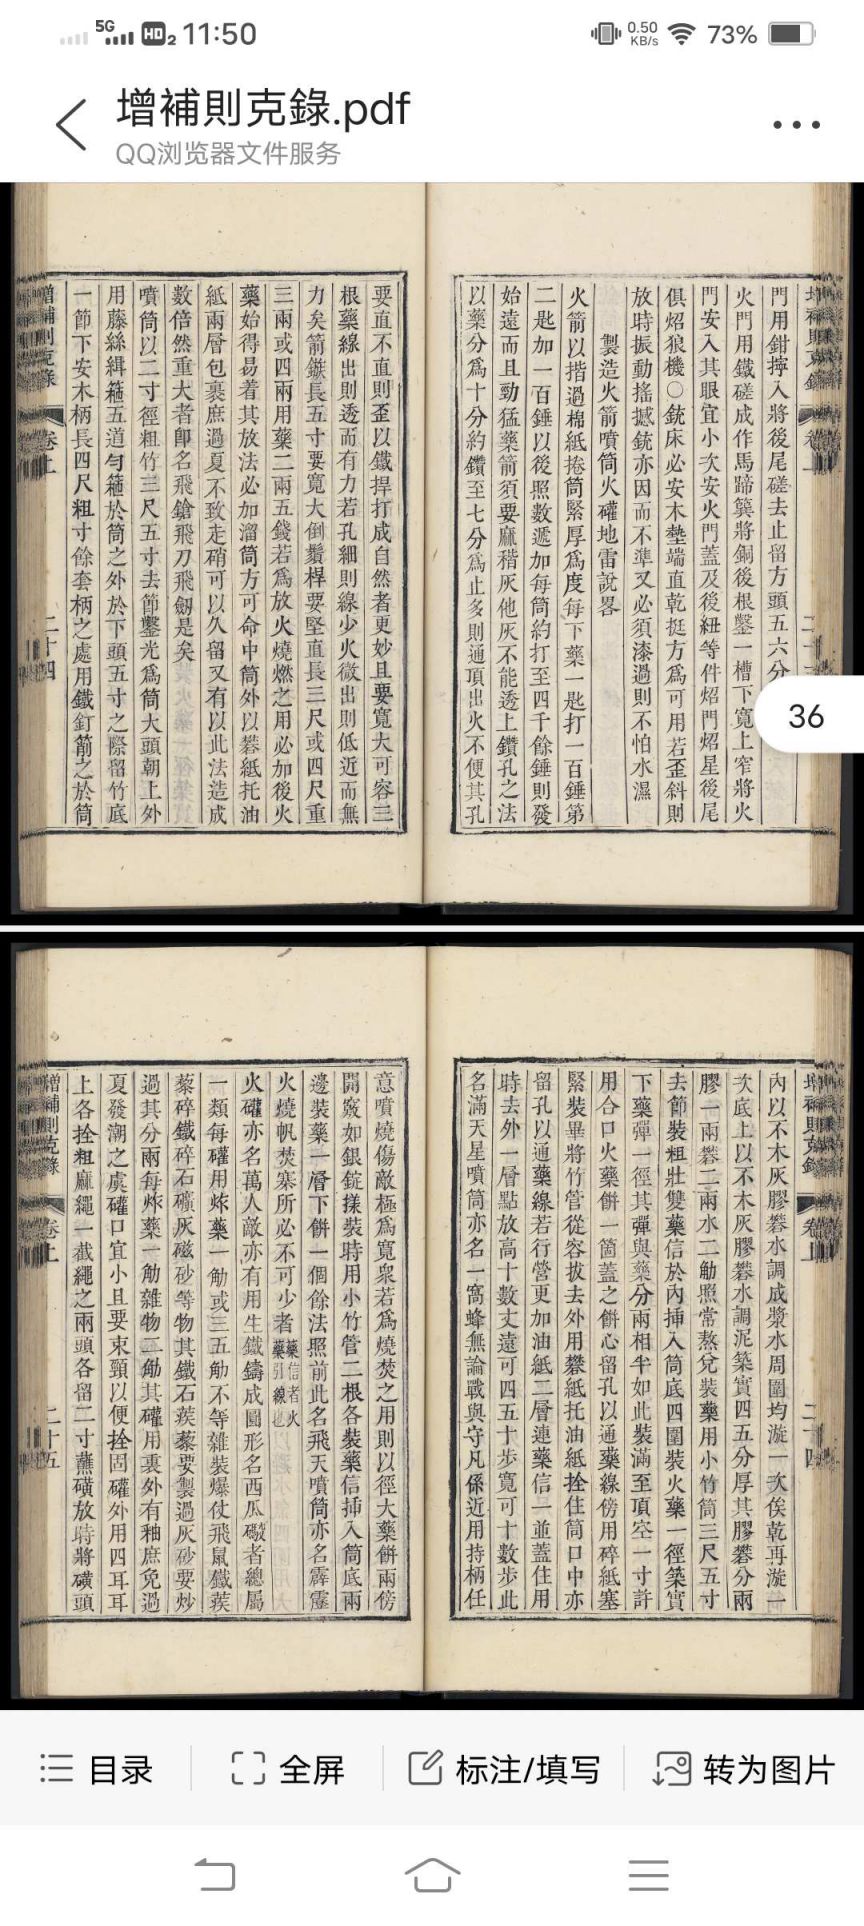 5G HD2 11:50 0.50 KB/s 73%
增補則克錄.pdf
QQ浏览器文件服务
增補則克錄 卷上
門用鉗擰入將後尾磋去止留方頭五六分
火門用鐵磋成作馬蹄簨將銅後根鑿一槽下寬上窄將火
門安入其眼宜小次安火門蓋及後紐等件炤門炤星後尾
俱炤狼機〇銃床必安木墊端直乾挺方為可用若歪斜則
放時振動搖撼銃亦因而不準又必須漆過則不怕水濕
製造火箭噴筒火礶地雷說畧
火箭以揩過棉紙捲筒緊厚為度每下藥一匙打一百錘第
二匙加一百錘以後照數遞加每筒約打至四千餘錘則發
始遠而且勁猛藥箭須要麻稭灰他灰不能透上鑽孔之法
以藥分為十分約鑽至七分為止多則通頂出火不便其孔
要直不直則歪以鐵捍打成自然者更妙且要寬大可容三
根藥線出則透而有力若孔細則線少火微出則低近而無
力矣箭鏃長五寸要寬大倒鬚桿要堅直長三尺或四尺重
三兩或四兩用藥二兩五錢若為放火燒燃之用必加後火
藥始得易着其放法必加溜筒方可命中筒外以礬紙托油
紙兩層包裹庶過夏不致走硝可以久留又有以此法造成
數倍然重大者即名飛鎗飛刀飛劒是矣
噴筒以二寸徑粗竹三尺五寸去節鑿光為筒大頭朝上外
用藤絲緝箍五道勻箍於筒之外於下頭五寸之際留竹底
一節下安木柄長四尺粗寸餘套柄之處用鐵釘箭之於筒
增補則克錄 卷上 二十四
36
增補則克錄 卷上 二十四
內以不木灰膠礬水調成漿水周圍均漩一次俟乾再漩一
次底上以不木灰膠礬水調泥築實四五分厚其膠礬分兩
膠一兩礬二兩水二觔照常熬兌裝藥用小竹筒三尺五寸
去節裝粗壯雙藥信於內挿入筒底四圍裝火藥一徑築實
下藥彈一徑其彈與藥分兩相半如此裝滿至頂空一寸許
用合口火藥餅一箇蓋之餅心留孔以通藥線傍用碎紙塞
緊裝畢將竹管從容拔去外用礬紙托油紙拴住筒口中亦
留孔以通藥線若行營更加油紙二層連藥信一並蓋住用
時去外一層點放高十數丈遠可四五十步寬可十數步此
名滿天星噴筒亦名一窩蜂無論戰與守凡係近用持柄任
意噴燒傷敵極為寬衆若為燒焚之用則以徑大藥餅兩傍
開竅如銀錠㨾裝時用小竹管二根各裝藥信挿入筒底兩
邊裝藥一層下餅一個餘法照前此名飛天噴筒亦名霹靂
火燒帆焚寨所必不可少者藥信者火藥引線也
火礶亦名萬人敵亦有用生鐵鑄成圓形名西瓜礮者總屬
一類每礶用炸藥一觔或三五觔不等雜裝爆仗飛鼠鐵蒺
藜碎鐵碎石礦灰磁砂等物其鐵石蒺藜要製過灰砂要炒
過其分兩每炸藥一觔雜物二觔其礶用裏外有釉庶免過
夏發潮之虞礶口宜小且要束頸以便拴固礶外用四耳耳
上各拴粗麻繩一截繩之兩頭各留二寸蘸磺放時將磺頭
增補則克錄 卷上 二十五
目录 全屏 标注/填写 转为图片